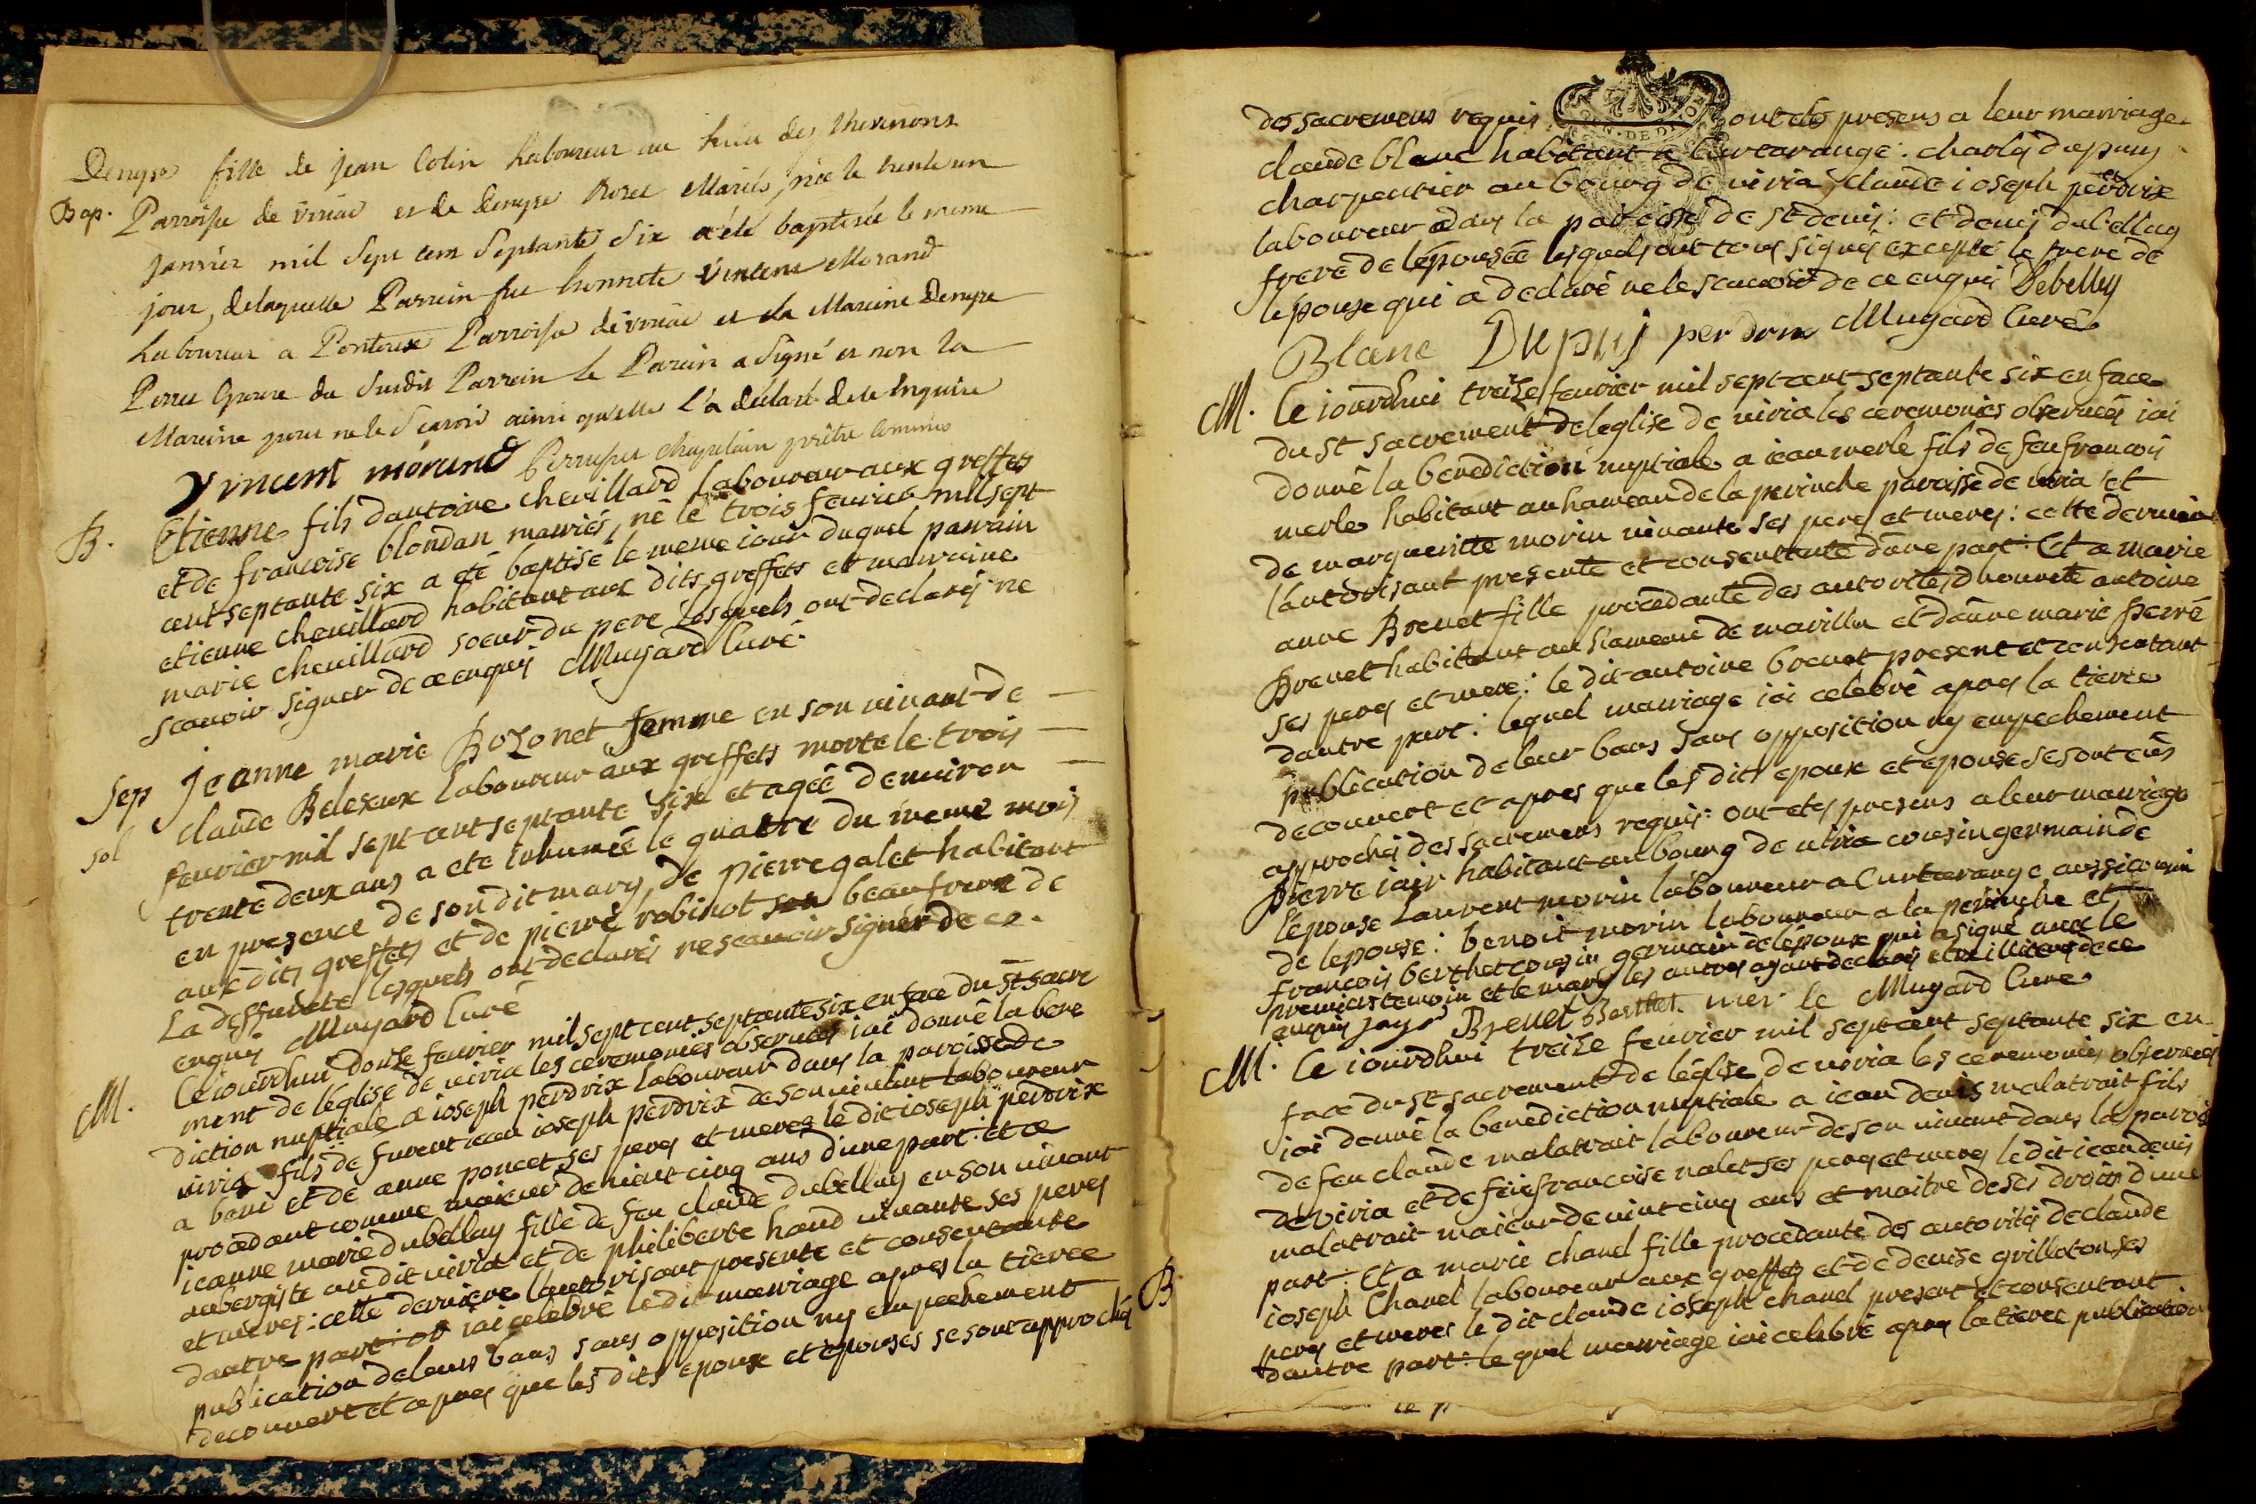 Denyse fille de jean Colin Laboureur au lieu des thevenons
Bap. Parroisse de viriac et de denyse Rozet Mariés, née le trente un
janvier mil Sept cent Septante Six a été baptisée le meme
jour, delaquelle Parrein fut honnete Vincent Morand
Laboureur a Ponteux Parroisse de viriac et la Mareine Denyse
Perret Epouse du Susdit Parrein le Parein a Signé et non la
Mareine pour ne le Scavoir ainsi quelle l'a déclaré de ce Enquise
Vincent morand Perruquet Chapelain prêtre commis
B. Etienne fils dantoine chevillard laboureur aux greffets
et de francoise blondan mariés, né le trois fevrier mil sept
cent septante six a eté baptisé le meme iour duquel parrain
etienne chevillard habitant aux dits greffets et marraine
marie chevillard soeur du pere Lesquels ont declarés ne
scavoir signer de ce enquis Mugard Curé
Sep Jeanne marie Bozonet femme en son vivant de
sol claude Beleseux laboureur aux greffets morte le trois
fevrier mil sept cent septante six et agée denviron
trente deux ans a ete inhumée le quatre du meme mois
en presence de son dit mary, de pierre galet habitant
aux dits greffets et de pierre robinot son beaufrere de
La deffunte lesquels ont declarés ne scavoir signer de ce
enquis Mugard Curé
M. Ceiourdhui douze fevrier mil sept cent septante six en face du St sacre
ment de léglise de viria les ceremonies observées iai donné la bene
diction nuptiale a ioseph perdrix laboureur dans la paroisse de
viria fils de furent iean ioseph perdrix de son vivant laboureur
a bani et de anne poncet ses peres et meres le dit ioseph perdrix
procedant comme maieur de vint cinq ans dune part: et a
ieanne marie dubellay fille de feu claude dubellay en son vivant
aubergiste audit viria et de philiberte haud vivante ses peres
et meres: cette derniere lautorisant presente et consentante
dautre part: et iai celebré ledit mariage apres la tierce
publication de leurs bans sans opposition ny empechement
decouvert et apres que les dits epoux et epouses se sont approchés
des sacremens requis: ont etés presens a leur mariage
claude blanc habitant a curtarange: charles dupuy
charpentier au bourg de viria, claude ioseph perdrix
laboureur dans la paroisse de st denis: et denis dubellay
frere de lépousée lesquels ont tous signés excepté le frere de
lepouse qui a declaré ne le scavoir de ce enquis Debelley
Blanc Dupuj perdrix Mugard Curé
M. Ceiourdhui treize fevrier mil sept cent septante six en face
du st sacrement de leglise de viria les ceremonies observées iai
donné la benediction nuptiale a iean merle fils de feu francois
merle habitant au hameau de la perinche paroisse de viria et
de margueritte morin vivante ses peres et meres: cette derniere
lautorisant presente et consentante dune part: Et a marie
anne Brevet fille procedante des autorités dhonnete antoine
Brevet habitant au hameau de mavilla et danne marie ferré
ses peres et mere: le dit antoine brevet present et consentant
dautre part: lequel mariage iai celebré apres la tierce
publication de leur bans sans opposition ny empechement
decouvert et apres que les dits epoux et epouse se sont etés
approchés des sacremens requis: ont etés presens a leur mariage
pierre iair habitant au bourg de viria cousin germain de
lépouse Laurent morin laboureur a Curtarange aussi cousin
de lepouse: benoit morin laboureur a la perinche et
francois berthet cousin germain de lépoux qui a signé avec le
premiers temoin et le marié les autres ayant declarés etre illiteres de ce
enquis jays Brevet Berthet mer le Mugard Cure
M. Ceiourdhui treize fevrier mil sept cent septante six en
face du st sacrement de léglise de viria les ceremonies observées
iai donné la benediction nuptiale a iean denis malatrait fils
de feu claude malatrait laboureur de son vivant dans la parois
de viria et de feüe francoise nalet ses peres et meres le dit iean denis
malatrait maieur de vint cinq ans et maitre de ses droits dune
part: Et a marie chanel fille procedante des autorités de claude
ioseph Chanel laboureur aux greffets et de denise grilleton ses
B peres et meres le dit claude ioseph chanel present et consentant
dautre part: le quel mariage iai celebré apres la tierce publication